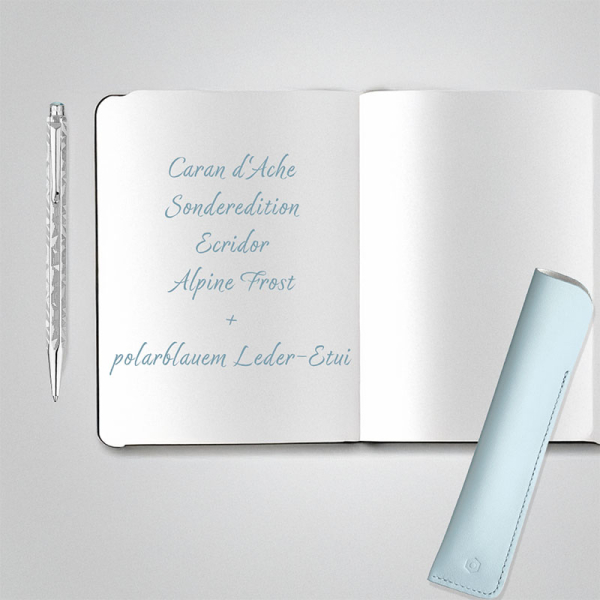 Caran d'Ache
Sonderedition
Ecridor
Alpine Frost
+
polarblauem Leder-Etui